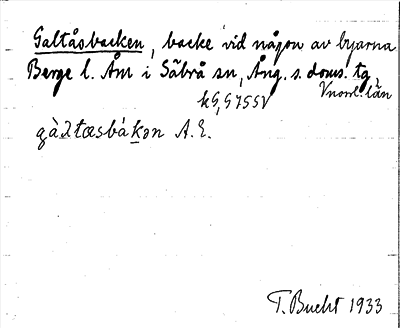 Galtåsbacken, backe vid någon av byarna
Berge l. Åm i Säbrå sn, Ång. s. doms. tg,
Vnorrl. län
gàλtæsbákən A.E.
T. Bucht 1933